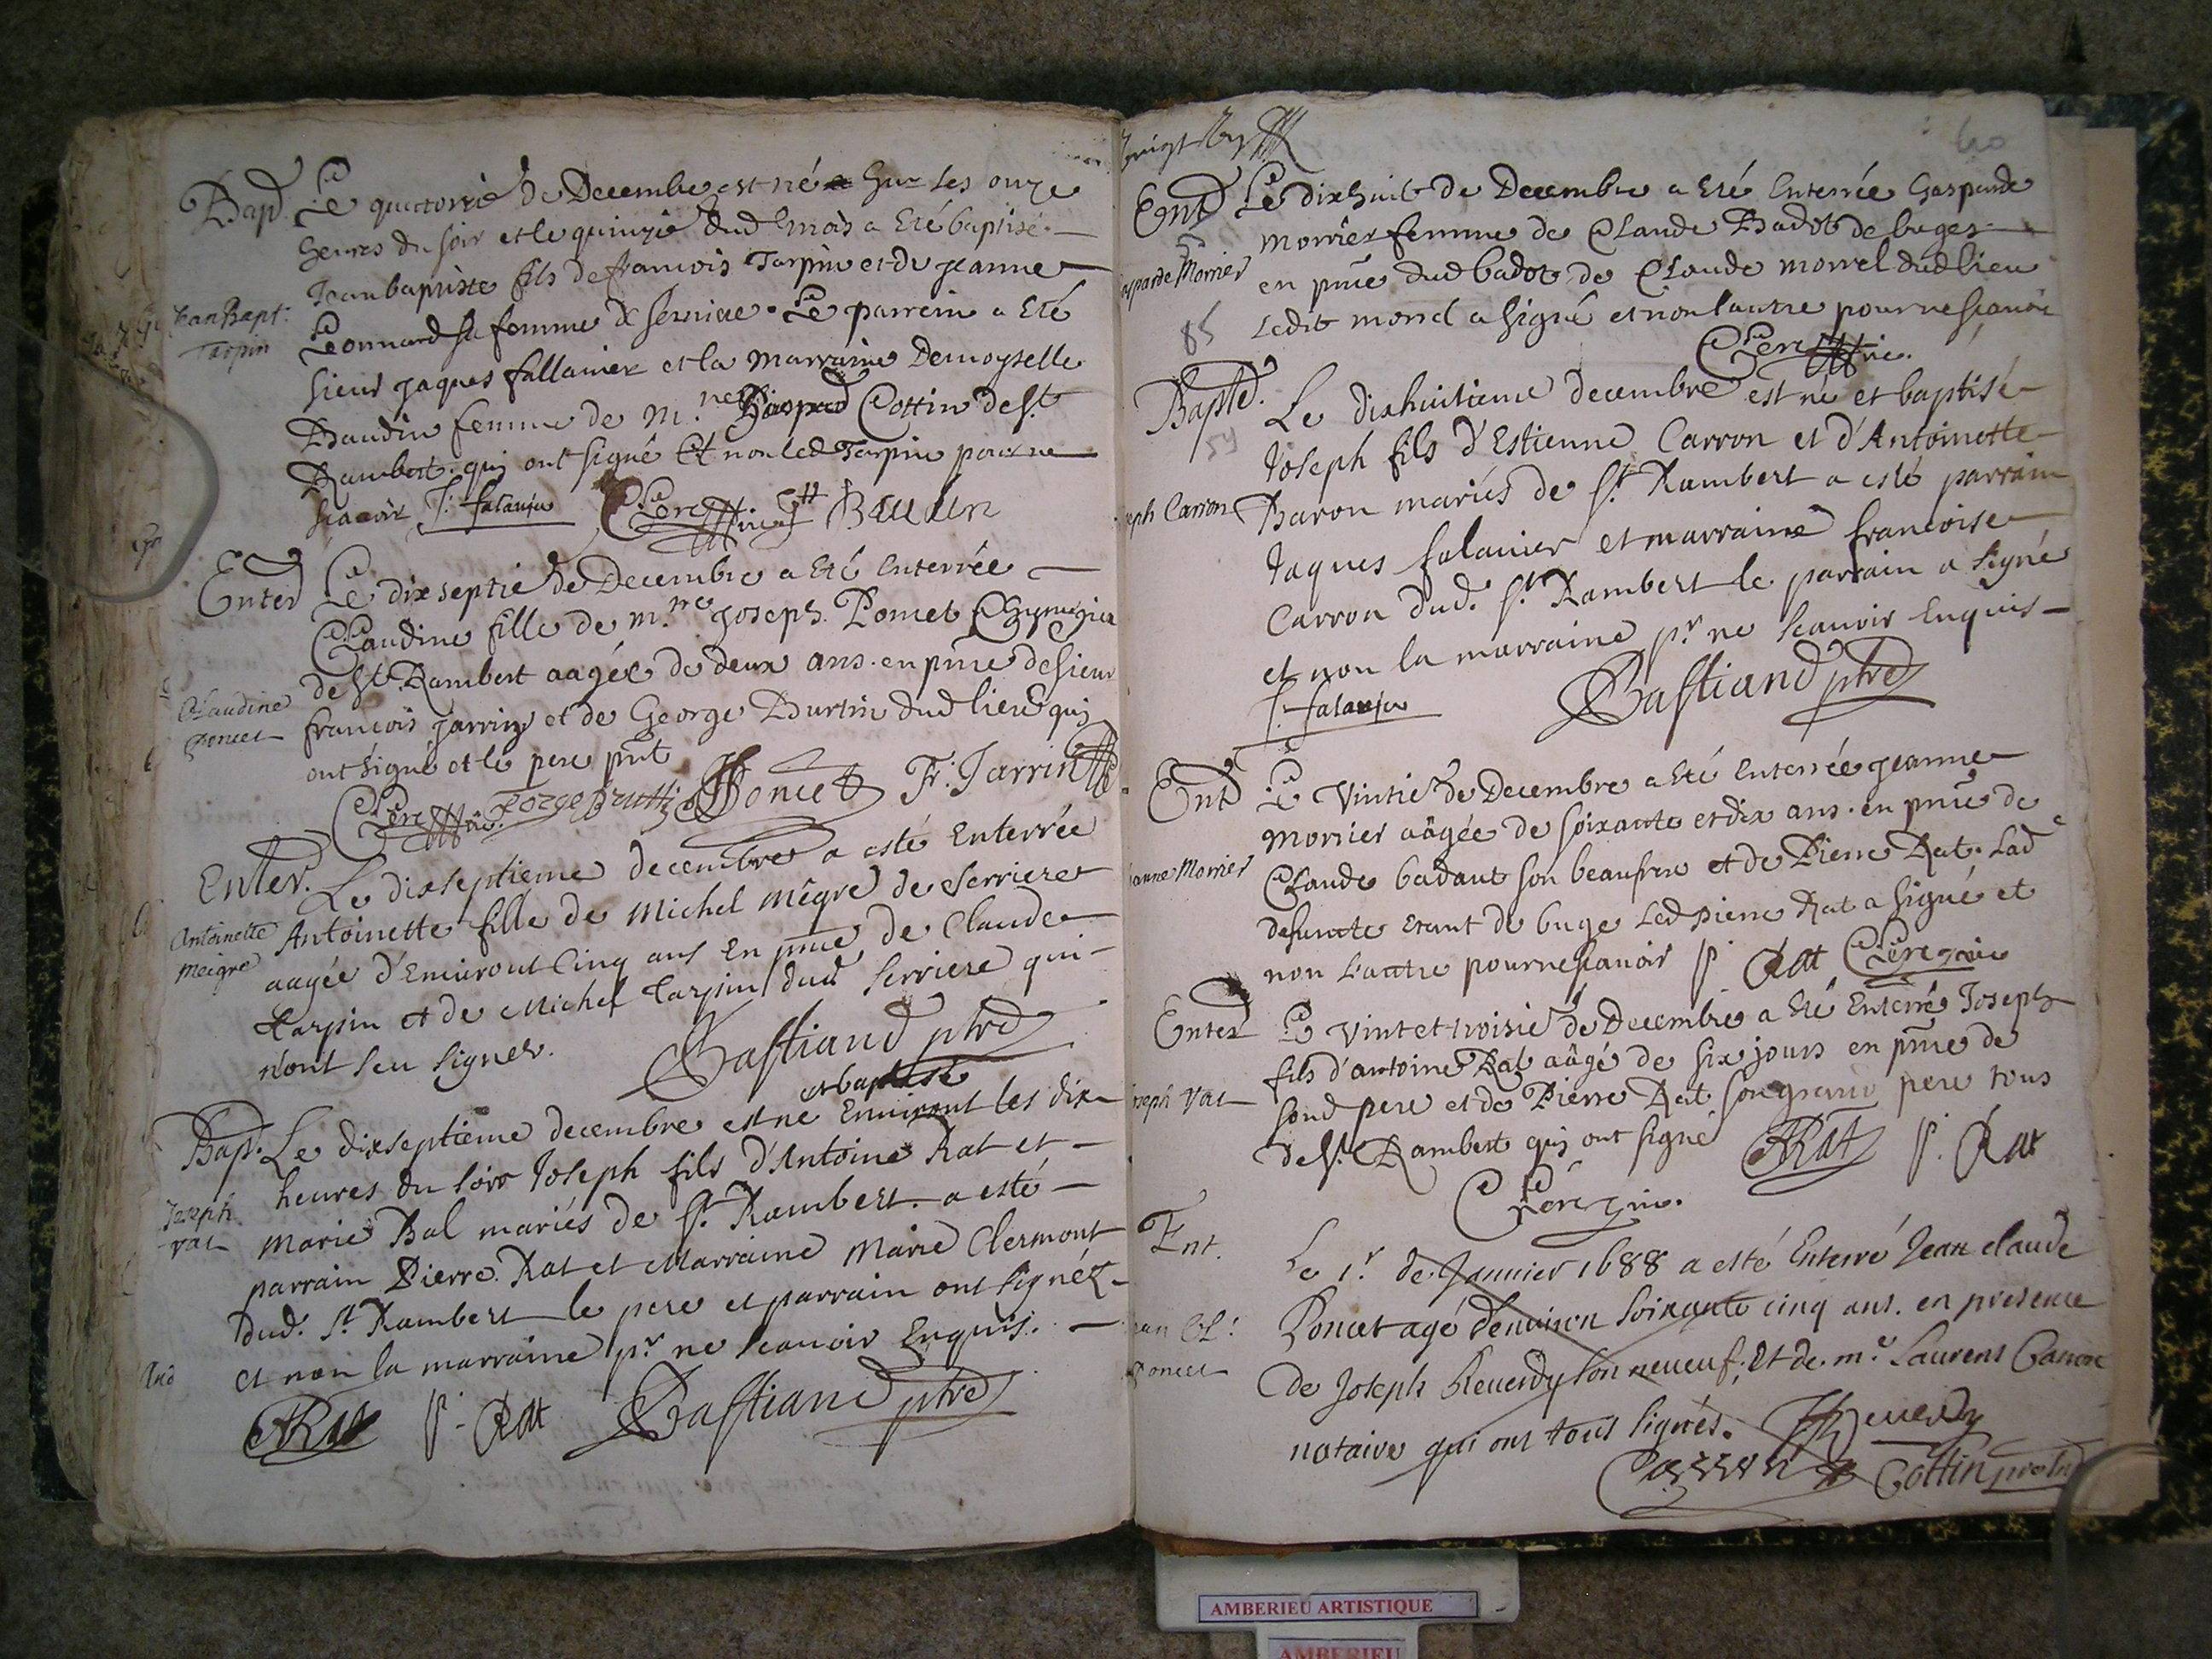 Bapd Le quatorzié de Decembre est né sur les onze
heures du soir et le quinzié dud mois a Eté baptisé
Jeanbaptiste fils de francois Tarpin et de jeanne
Jean Bapt: Tarpin
Leonnard sa femme de Serriere. Le parrein a Eté
sieur jaques fallauier et la Marraine Demoyselle
Baudin femme de m.re Gaspard Cottin de St
Rambert. qui ont signé Et non led Tarpin pour ne
scavoir J. falauier Baudin
Enterd Le dix septié de Decembre a Eté Enterrée
Claudine fille de m.re joseph Poncet Chyrurgien
de St. Rambert aagée de deux ans. en pnce de sieur
Claudine Poncet
francois jarrin et de George Burtin dud lieu qui
ont signé et le pere pnt
Poncet Fr. Jarrin
Enter. Le dixseptieme decembre a esté Enterrée
Antoinette Meigre
Antoinette fille de Michel Mêgre de Serriere
aagée d'Enuiront Cinq ans En pnce de Claude
Tarpin et de Michel Tarpin dud Serriere qui
n'ont sceu signer. Bastiand ptre
et baptisé
Bapt. Le dixseptieme decembre est né Enuiront les dix
heures du soir Joseph fils d'Antoine Rat et
Joseph rat
Marie Bal mariés de St. Rambert. a esté
parrain Pierre Rat et Marraine Marie Clermont
dud. St. Rambert le pere et parrain ont signéz
et non la marraine pr. ne scauoir Enquis.
ARat P. Rat Bastiand ptre
60
Entd Le dixhuit de Decembre a Eté Enterrée Gasparde
Morrier femme de Claude Badot de buges
Gasparde Morrier
en pnce dud badot de Claude morrel dud lieu
85
Ledit morrel a signé et non lautre pour ne scauoir
Baptd. Le dixhuitieme decembre est né et baptisé
54
Joseph fils d'Estienne Carron et d'Antoinette
Joseph Carron
Baron mariés de St Rambert a esté parrain
Jaques falauier et marraine francoise
Carron dud. St. Rambert le parrain a signé
et non la marraine pr. ne scauoir Enquis
J. falauier Bastiand ptre
Entd Le Vintié de Decembre a Eté Enterrée jeanne
Morrier aâgée de soixante et dix ans. en pnce de
Jeanne Morrier
Claude badaut son beaufrere et de Pierre Rat. Lade
defuncte Etant de buge Led pierre Rat a signé et
non L'autre pour ne scauoir P. Rat
Enterd Le Vint et troisié de Decembre a Eté Enterré Joseph
fils d'antoine Rat aâgé de six jours en pnce de
Joseph rat
sond pere et de Pierre Rat son grand pere tous
de St. Rambert qui ont signé ARat P. Rat
Ent. Le 1.r de Januier 1688 a esté Enterré Jean claude
Jean Cl: Poncet
Poncet agé denuiron soixante cinq ans. en presence
de Joseph Reuerdy son neueuf, Et de. me. Laurens Carron
notaire qui ont tous signés. Reuerdy
Carron Cottin
AMBERIEU ARTISTIQUE
AMBERIEU